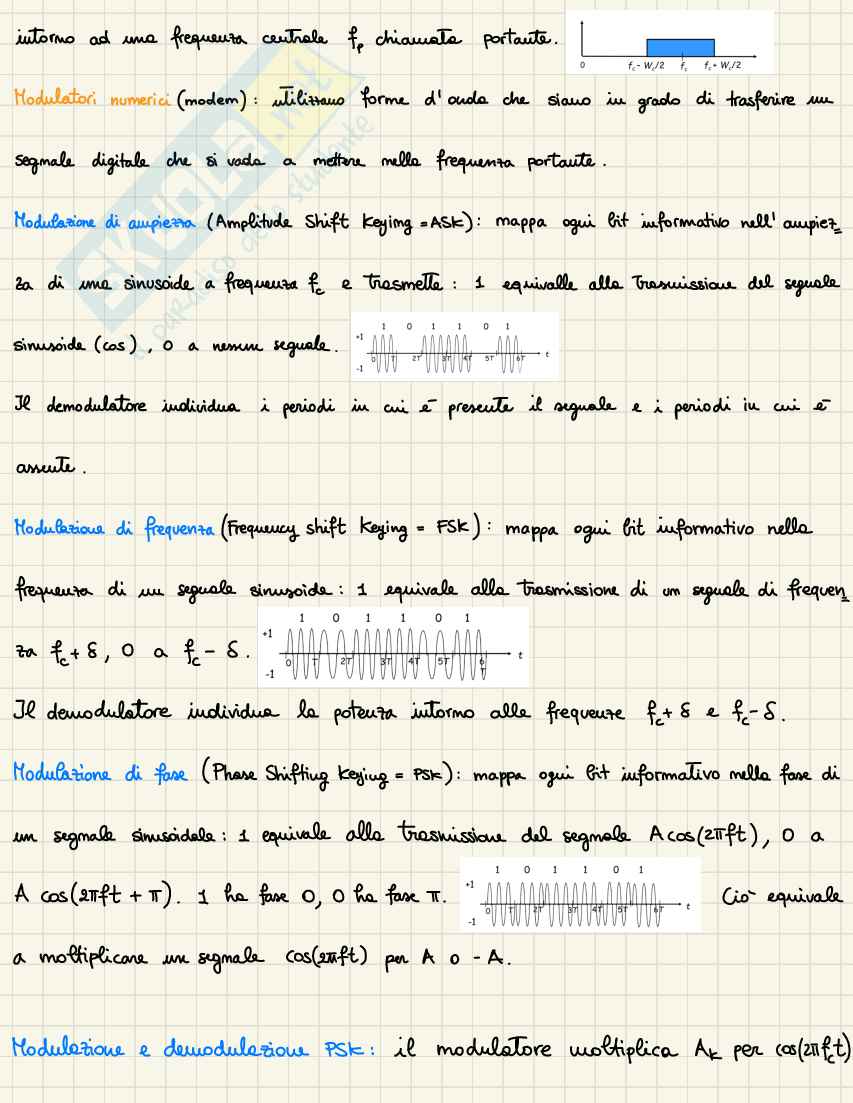 intorno ad una frequenza centrale fp chiamata portante.
0 fc - Wc/2 fc fc + Wc/2
Modulatori numerici (modem) : utilizzano forme d'onda che siano in grado di trasferire un
segnale digitale che si vada a mettere nella frequenza portante.
Modulazione di ampiezza (Amplitude Shift Keying = ASK) : mappa ogni bit informativo nell' ampiez_
za di una sinusoide a frequenza fc e trasmette : 1 equivalle alla trasmissione del segnale
sinusoide (cos) , 0 a nessun segnale.
1 0 1 1 0 1
+1
0 T 2T 3T 4T 5T 6T t
-1
Il demodulatore individua i periodi in cui è presente il segnale e i periodi in cui è
assente.
Modulazione di frequenza (Frequency shift Keying = FSK) : mappa ogni bit informativo nella
frequenza di un segnale sinusoide : 1 equivale alla trasmissione di un segnale di frequen_
za fc + δ , 0 a fc - δ .
1 0 1 1 0 1
+1
0 T 2T 3T 4T 5T 6T t
-1
Il demodulatore individua la potenza intorno alle frequenze fc + δ e fc - δ.
Modulazione di fase (Phase Shifting Keying = PSK) : mappa ogni bit informativo nella fase di
un segnale sinusoidale : 1 equivale alla trasmissione del segnale A cos(2πft) , 0 a
A cos(2πft + π). 1 ha fase 0, 0 ha fase π.
1 0 1 1 0 1
+1
0 T 2T 3T 4T 5T 6T t
-1
Ciò equivale
a moltiplicare un segnale cos(2πft) per A o - A.
Modulazione e demodulazione PSK : il modulatore moltiplica Ak per cos(2πfct)
SKUOLA.net
il paradiso dello studente